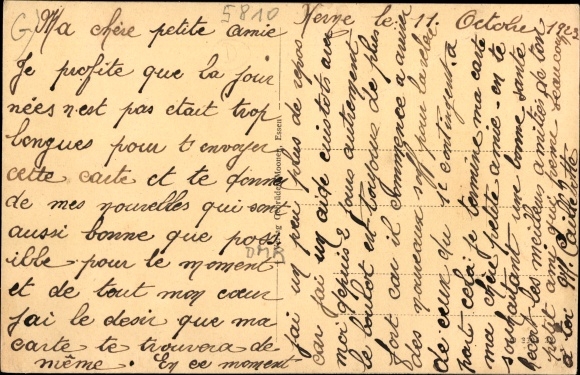 5810
Herne le 11 Octobre 1923
Ma chère petite amie
Je profite que la jour
nées n'est pas était trop
longues pour t'envoyer
cette carte et te donne
de mes nouvelles qui sont
aussi bonne que poss
ible pour le moment
et de tout mon cœur
j'ai le desir que ma
carte te trouvera de
même. En ce moment
j'ai un peu plus de repos
car j'ai un aide cuistots avec
moi depuis 2 jours autrement
le boulot est toujours de plus
fort car il commence a arriver
des nouveaux soff pour la
de ceux qu contingent. a
part cela je termine ma carte
ma chère petite amie en te
souhaitant une bonne santé
reçoit les meilleurs amitiés de ton
petit ami que t'aime beaucoup
a toi M.
Essen